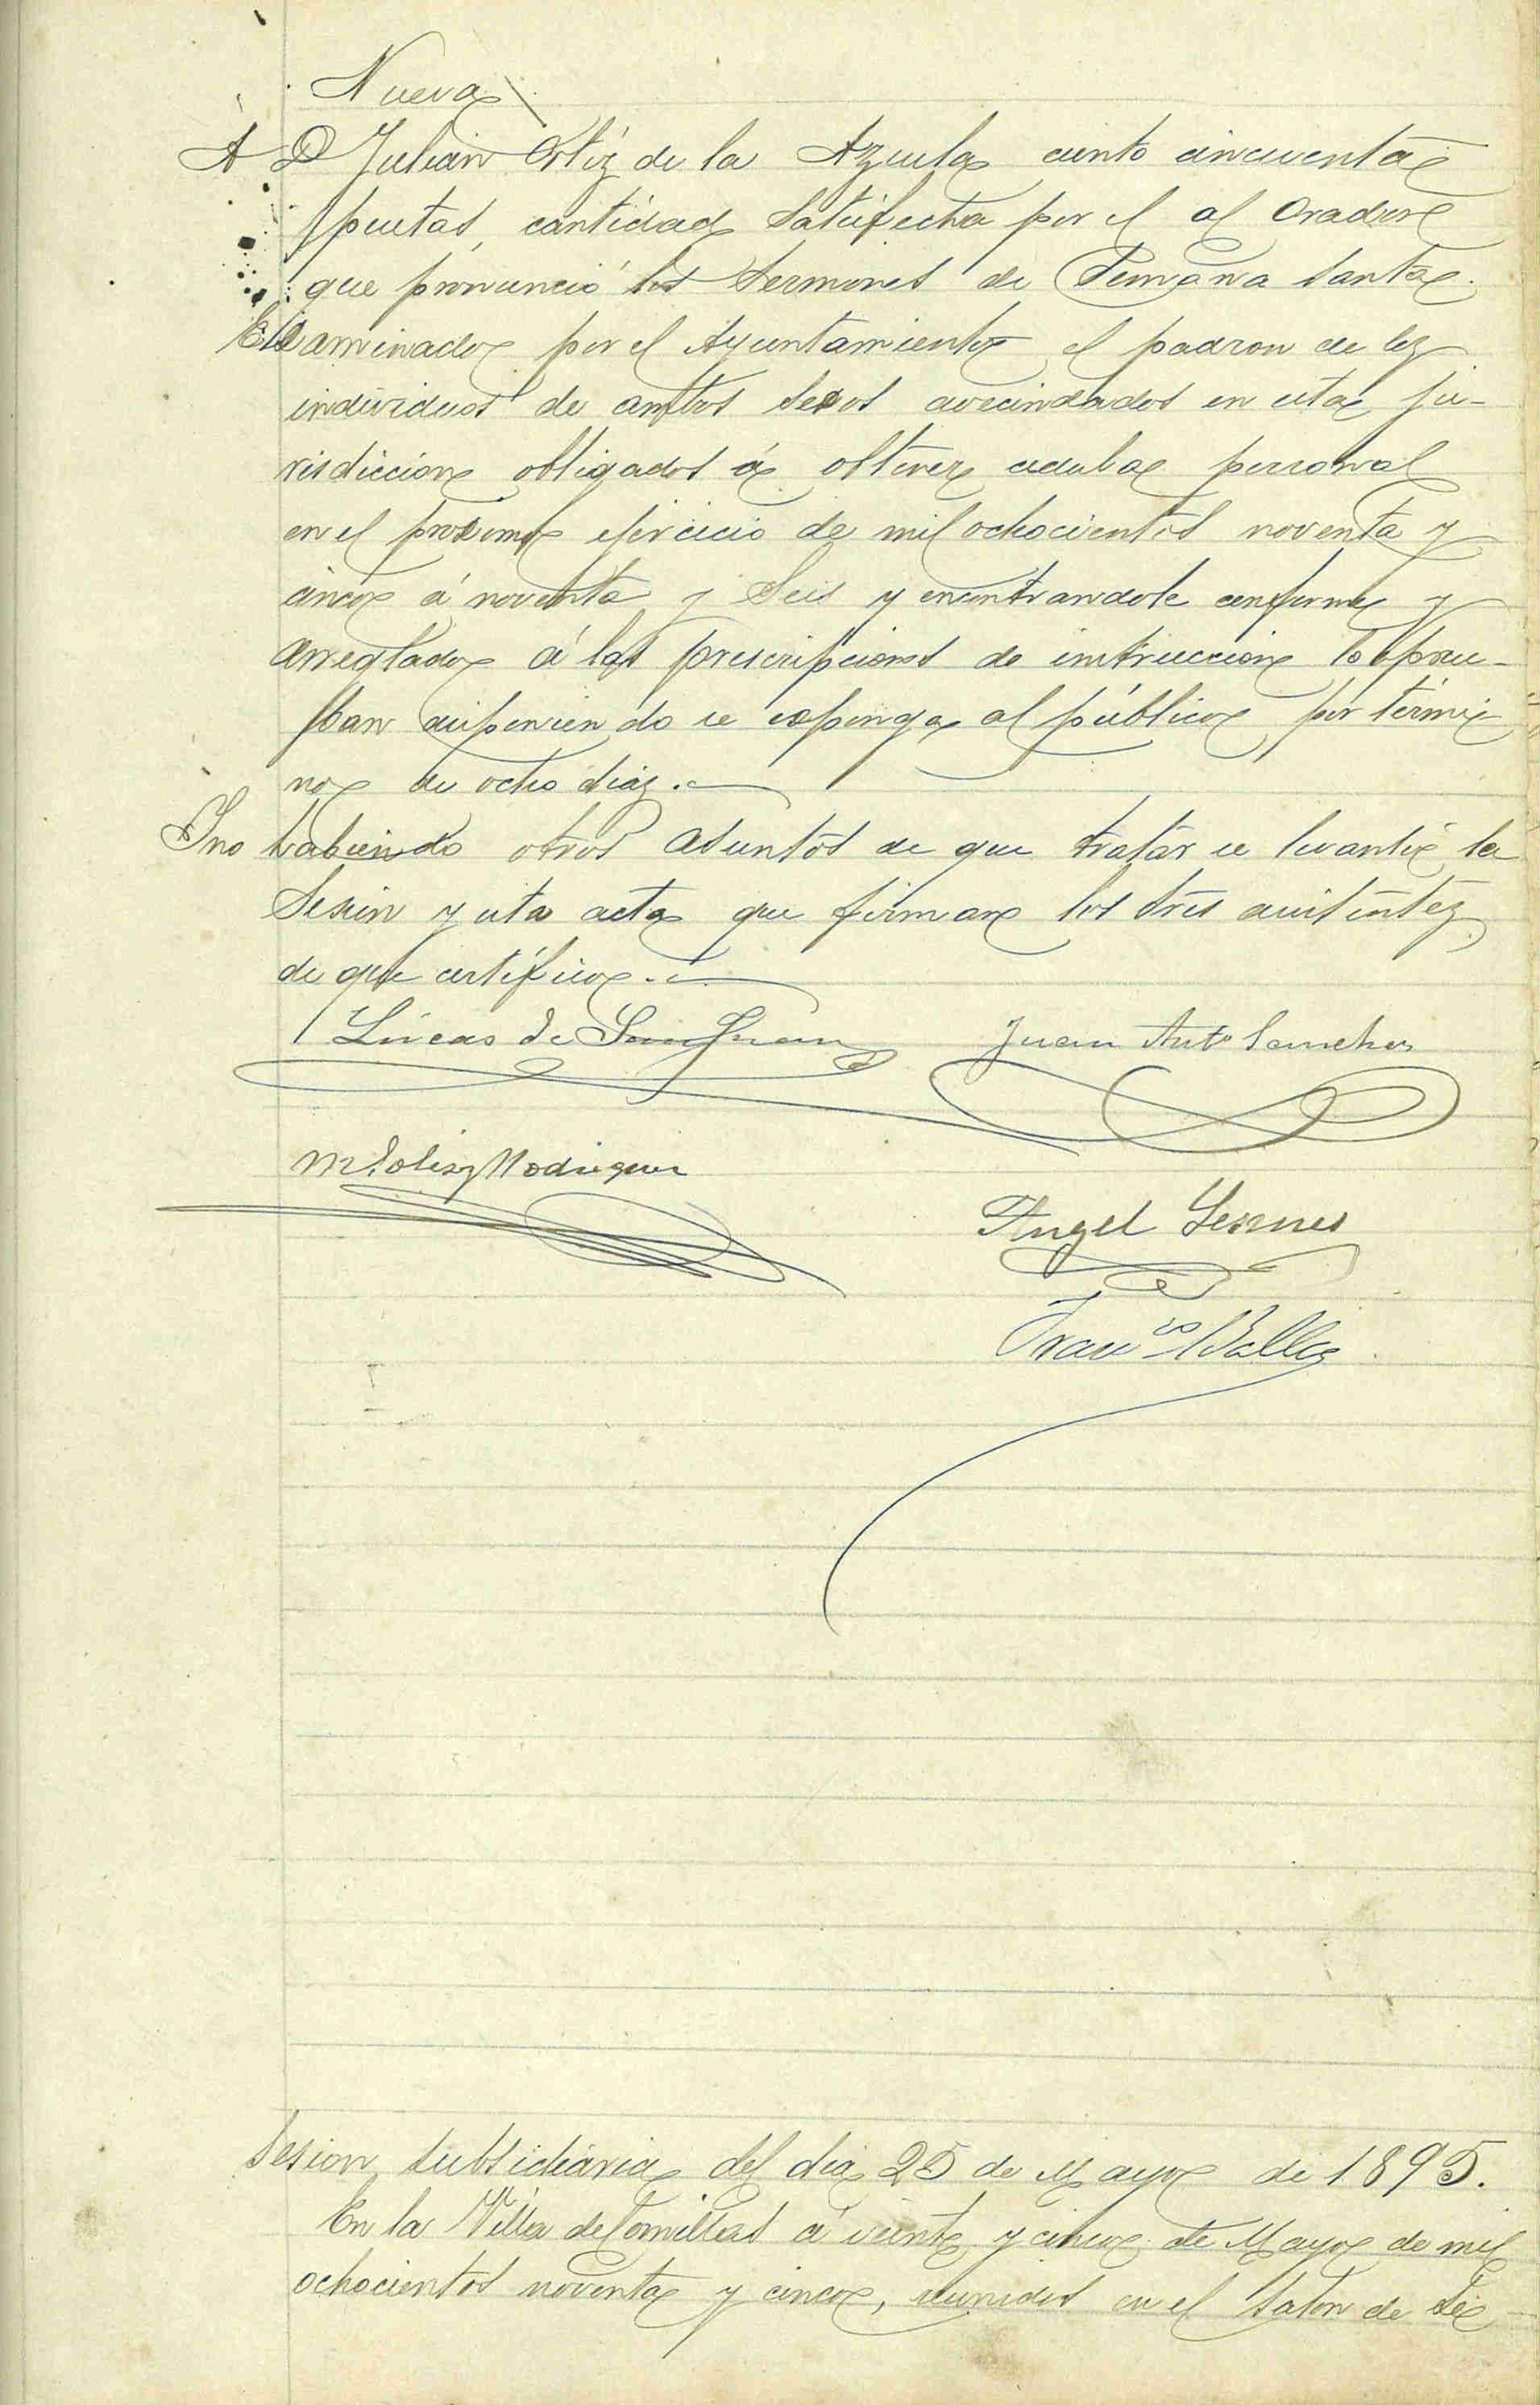 Nueva
A D Julian Ortiz de la Azuela ciento cincuenta
pesetas, cantidad satisfecha por el al Orador
que pronunció los Sermones de Semana Santa.
Examinado por el Ayuntamiento el padron de los
individuos de ambos sexos avecindados en esta ju-
risdiccion obligados á obtener cedula personal
en el proximo ejercicio de mil ochocientos noventa y
cinco á noventa y seis y encontrandole conforme y
arreglado á las prescripciones de instruccion lo aprue-
ban disponiendo se esponga al público por térmi-
no de ocho dias.
Y no habiendo otros asuntos de que tratar se levantó la
Sesion y esta acta que firman los Sres asistentes
de que certifico.
Lucas de San Juan
Juan Anto Sanchez
M Solis y Rodriguez
Angel Lesmes
Franco Balla
Sesion subsidiaria del dia 25 de Mayo de 1895.
En la Villa de Comillas á veinte y cinco de Mayo de mil
ochocientos noventa y cinco, reunidos en el Salon de Se